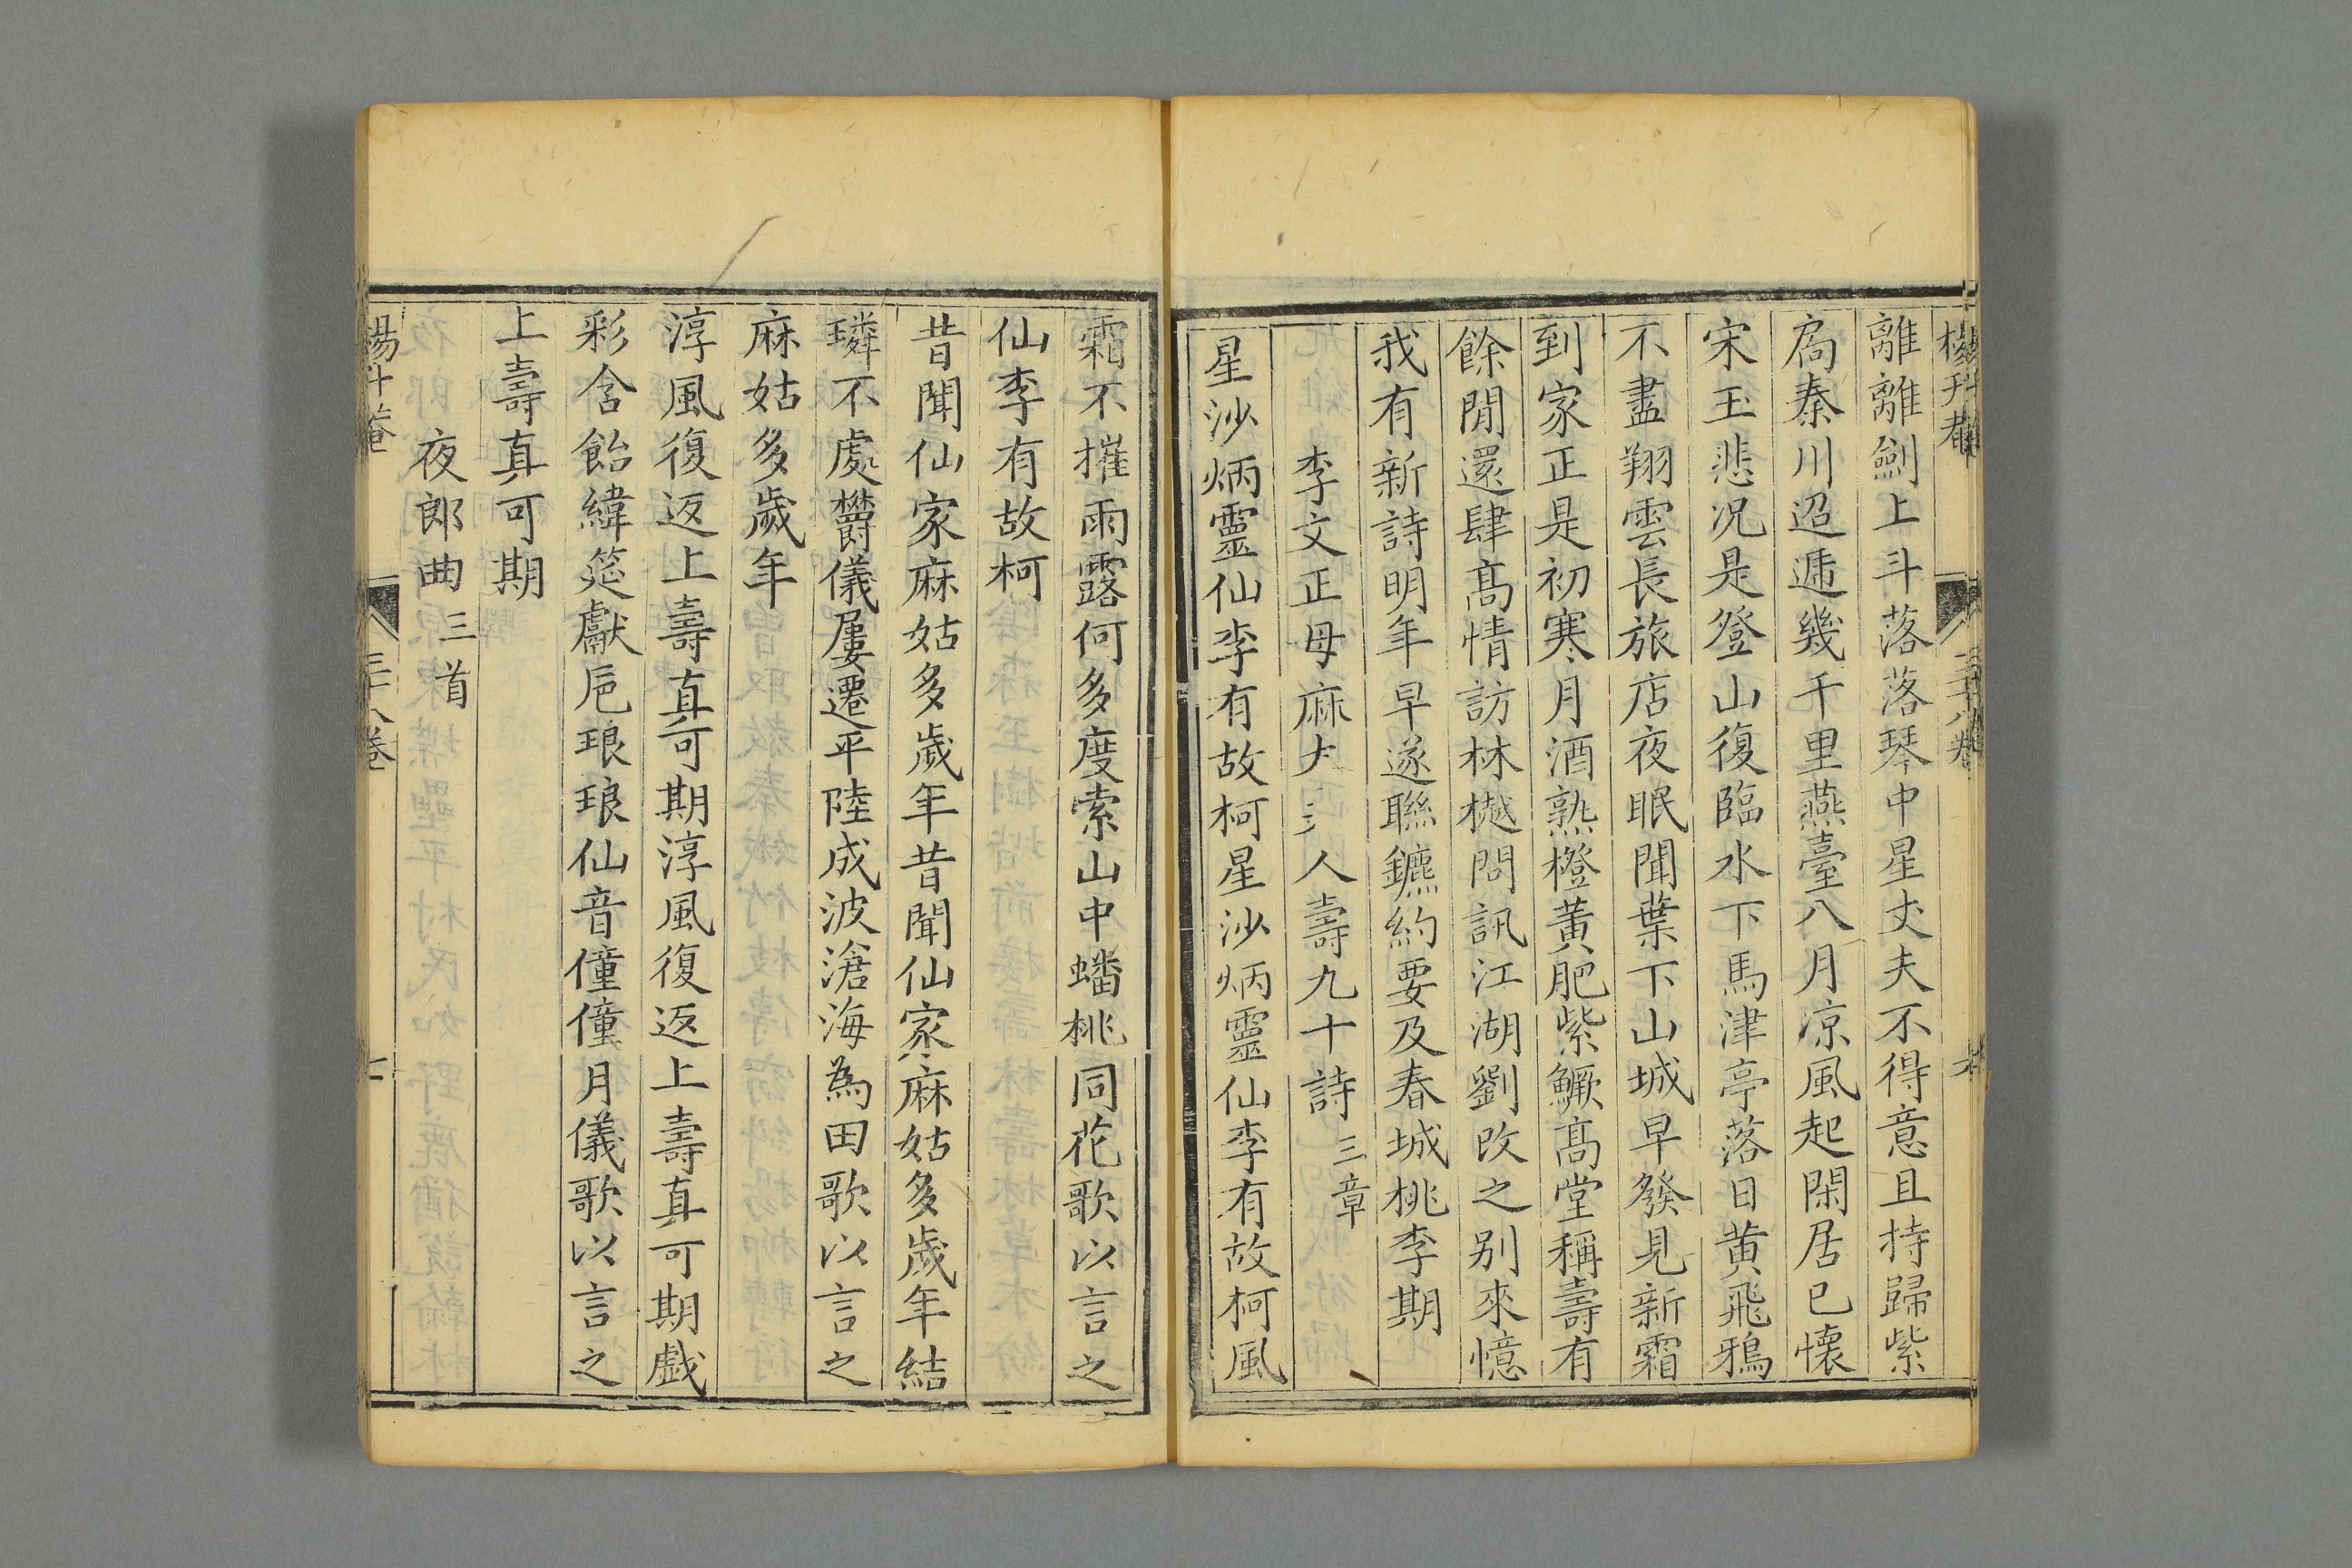 離離劍上斗落落琴中星丈夫不得意且持歸紫
扃秦川迢遞幾千里燕臺八月凉風起閑居已懷
宋玉悲况是登山復臨水下馬津亭落日黄飛鴉
不盡翔雲長旅店夜眠聞葉下山城早發見新霜
到家正是初寒月酒熟橙黄肥紫鱖高堂稱壽有
餘閒還肆高情訪林樾問訊江湖劉改之别來憶
我有新詩明年早遂聯鑣約要及春城桃李期
李文正母麻太人壽九十詩三章
星沙炳靈仙李有故柯星沙炳靈仙李有故柯風
霜不摧雨露何多度索山中蟠桃同花歌以言之
仙李有故柯
昔聞仙家麻姑多歲年昔聞仙家麻姑多歲年結
璘不處欝儀屢遷平陸成波滄海為田歌以言之
麻姑多歲年
淳風復返上壽真可期淳風復返上壽真可期戯
彩含飴緯筵獻卮琅琅仙音僮僮月儀歌以言之
上壽真可期
夜郎曲三首